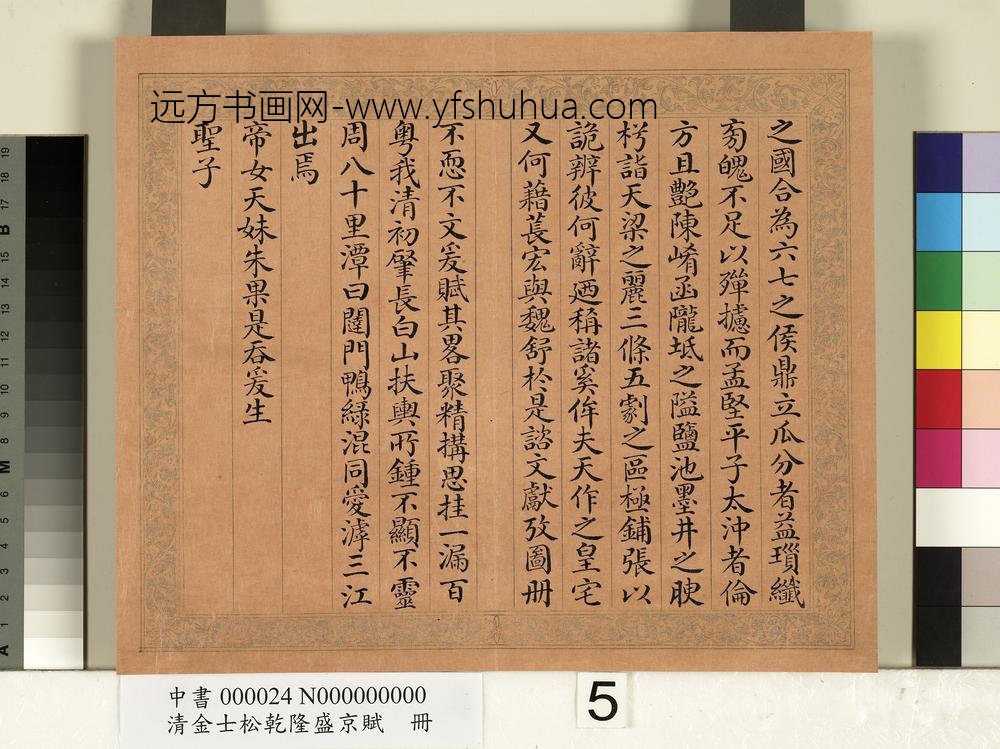 远方书画网-www.yfshuhua.com
之國合為六七之侯鼎立瓜分者益瑣纖
芴魄不足以殫攄而孟堅平子太沖者倫
方且艷陳崤函隴坻之隘鹽池墨井之腴
枍詣天梁之麗三條五劇之區極鋪張以
詭辨彼何辭廼稱諸奚侔夫天作之皇宅
又何藉萇宏與魏舒於是諮文獻攷圖冊
不恧不文爰賦其畧聚精搆思挂一漏百
粤我清初肇長白山扶輿所鍾不顯不靈
周八十里潭曰闥門鴨綠混同愛滹三江
出焉
帝女天妹朱果是吞爰生
聖子
中書 000024 N000000000
清金士松乾隆盛京賦 冊
5
19
18
17
B
15
14
13
12
11
10
9
8
M
6
5
4
3
2
1
A